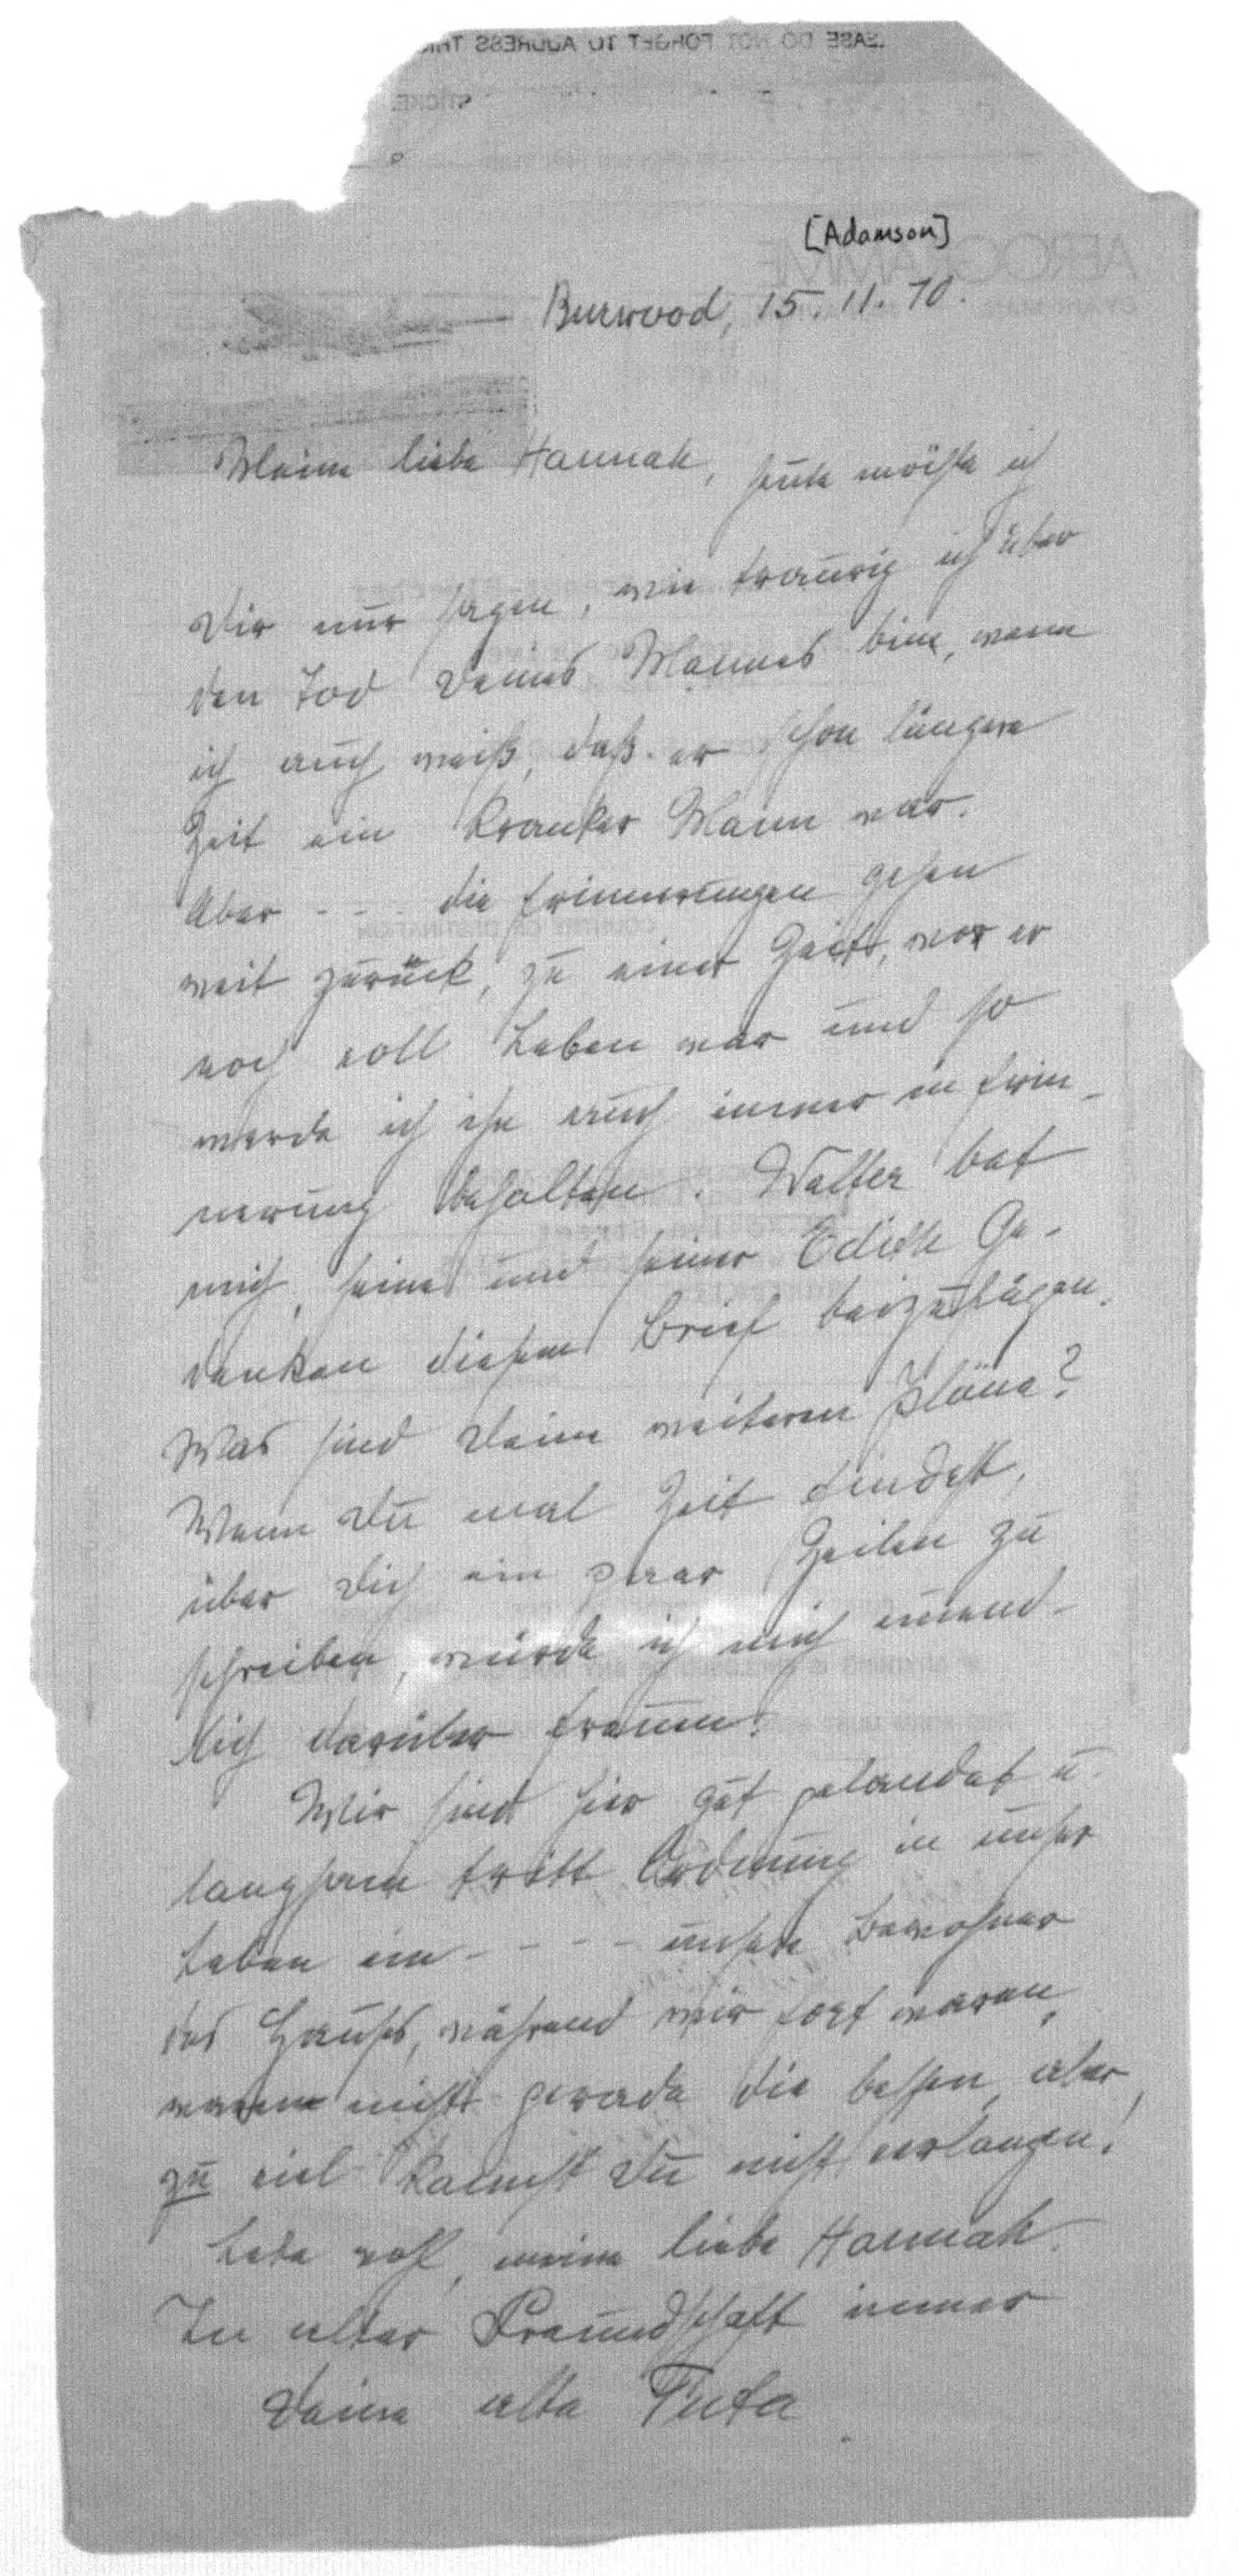 [Adamson]
Burwood, 15. 11. 70.
Meine liebe Hannah, heute möchte ich
Dir nur sagen, wie traurig ich über
den Tod Deines Mannes bin, wenn
ich auch weiß, daß er schon längere
Zeit ein kranker Mann war.
Aber - - - die Erinnerungen gehen
weit zurück, zu einer Zeit, wo er
noch voll Leben war und so
werde ich ihn auch immer in Erin-
nerung behalten. Walter bat
mich, seine und seiner Edith Ge-
danken diesem Brief beizufügen.
Was sind Deine weiteren Pläne?
Wenn Du mal Zeit findest,
über Dich ein paar Zeilen zu
schreiben, würde ich mich unend-
lich darüber freuen.
Wir sind hier gut gelandet u.
langsam tritt Ordnung in unser
Leben ein - - - - unsere Bewohner
des Hauses, während wir fort waren,
waren nicht gerade die besten, aber,
zu viel kannst Du nicht verlangen!
Lebe wohl, meine liebe Hannah.
In alter Freundschaft immer
Deine alte